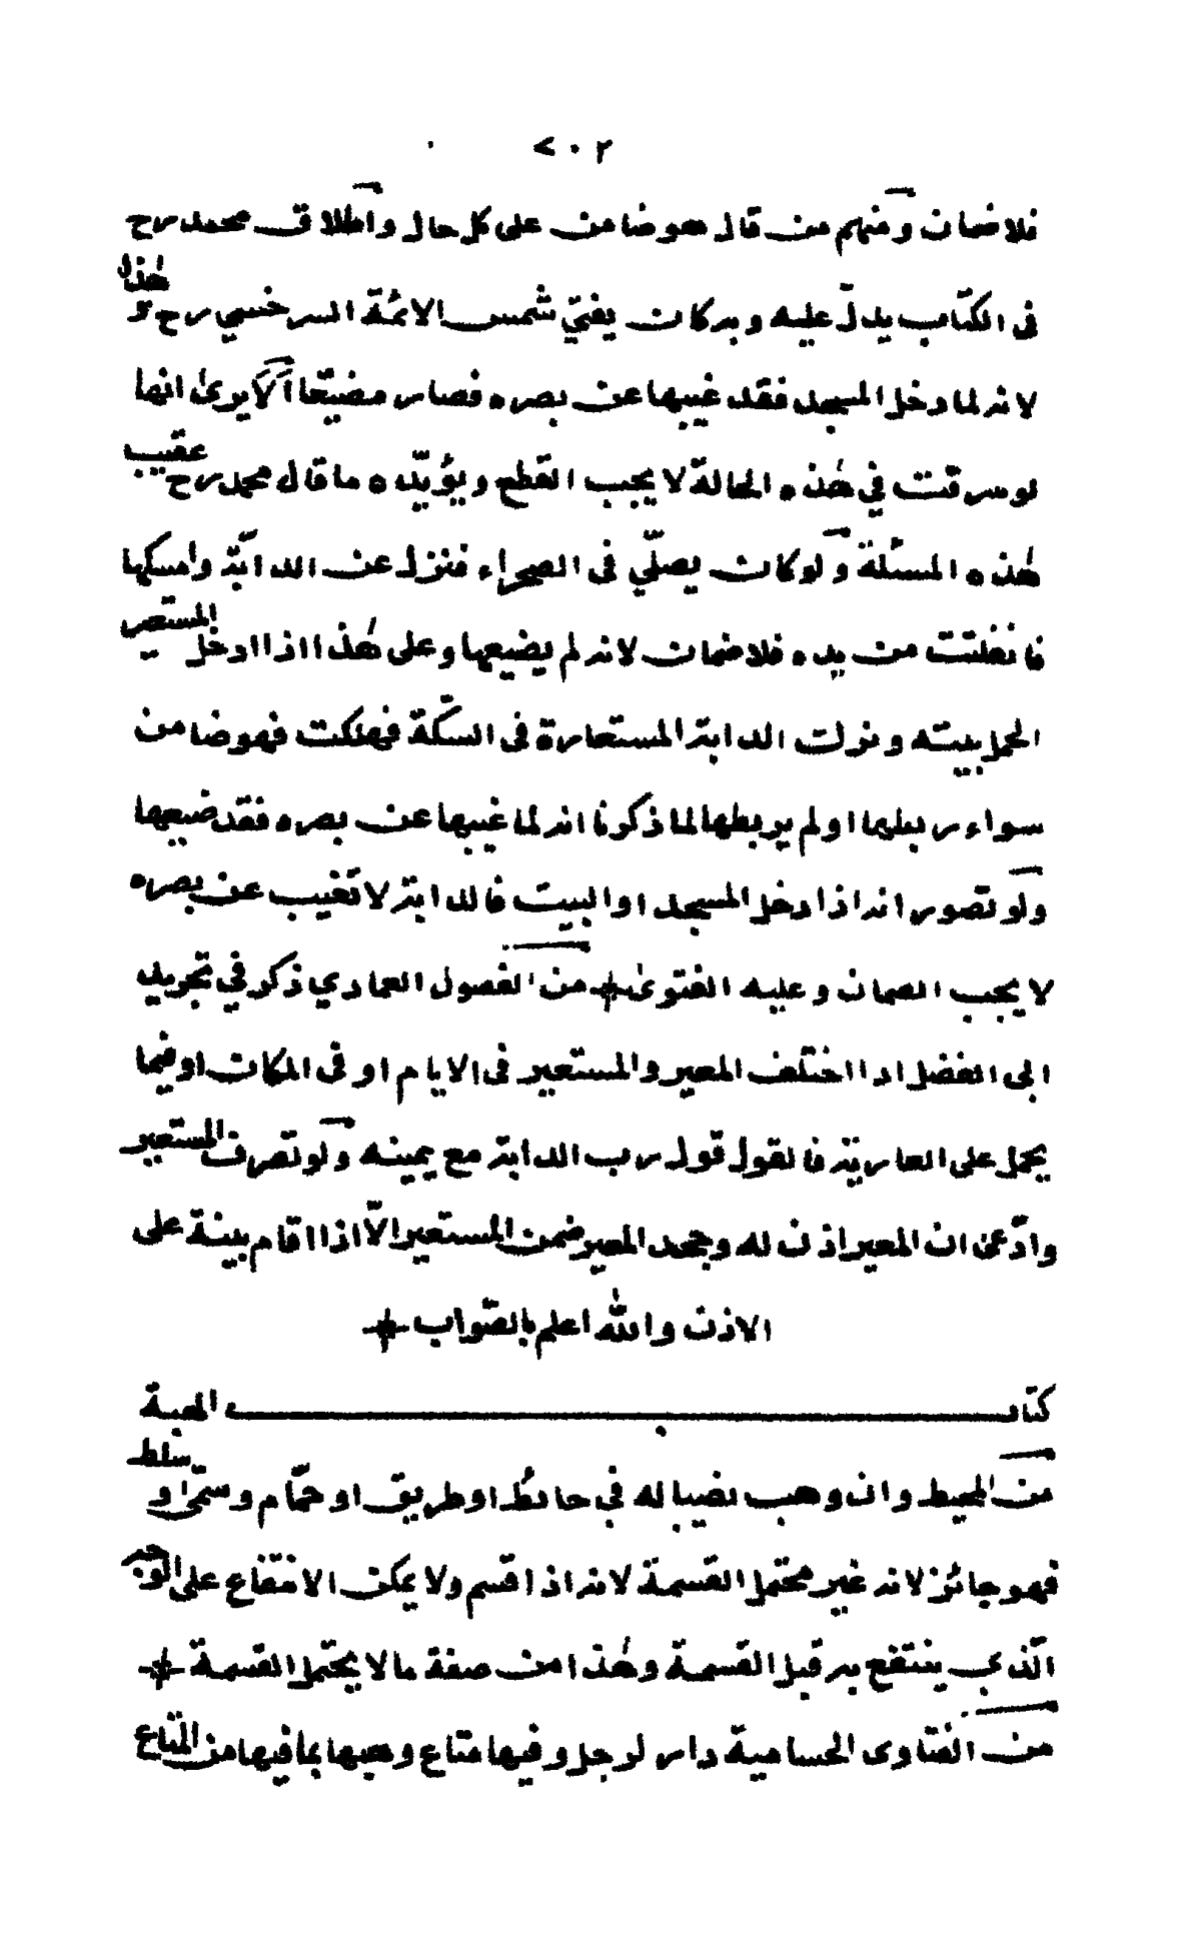 ٢٠٧
فلا ضمان ومنهم من قال هو ضامن على كل حال واطلاق محمد رح
فى الكتاب يدلّ عليه وبه كان يفتيّ شمس الائمّة السرخسي رح وهٰذا
لانه لما دخل المسجد فقد غيبها عن بصره فصار مضيّعا الا يرىٰ انها
لو سرقت في هٰذه الحالة لا يجب القطع ويؤيّده ما قال محمد رح عقيب
هٰذه المسئلة ولو كان يصلّي فى الصحراء فنزل عن الدابّة وامسكها
فانفلتت من يده فلا ضمان لانه لم يضيعها وعلى هٰذا اذا ادخل المستعير
الحمل بيته ونزلت الدابة المستعارة فى السكّة فهلكت فهو ضامن
سواء ربطها او لم يربطها لما ذكرنا انه لما غيبها عن بصره فقد ضيعها
ولو تصور انه اذا دخل المسجد او البيت فالدابة لا تغيب عن بصره
لا يجب الضمان وعليه الفتوىٰ من الفصول العمادي ذكر في تجريد
ابى الفضل اذا اختلف المعير والمستعير فى الايام او فى المكان او فيما
يحمل على العارية فالقول قول رب الدابة مع يمينه ولو تصرف المستعير
وادّعى ان المعير اذن له وجحد المعير ضمن المستعير الّا اذا اقام بينة على
الاذن والله اعلم بالصّواب
كتاب الهبة
من المحيط وان وهب نصيبا له في حائط او طريق او حمّام وسمّى وسلط
فهو جائز لانه غير محتمل القسمة لانه اذا قسم ولا يمكن الانتفاع على الوجه
الّذي ينتفع به قبل القسمة وهٰذا من صفة ما لا يحتمل القسمة
من الفتاوى الحسامية دار لرجل وفيها متاع وهبها بما فيها من المتاع